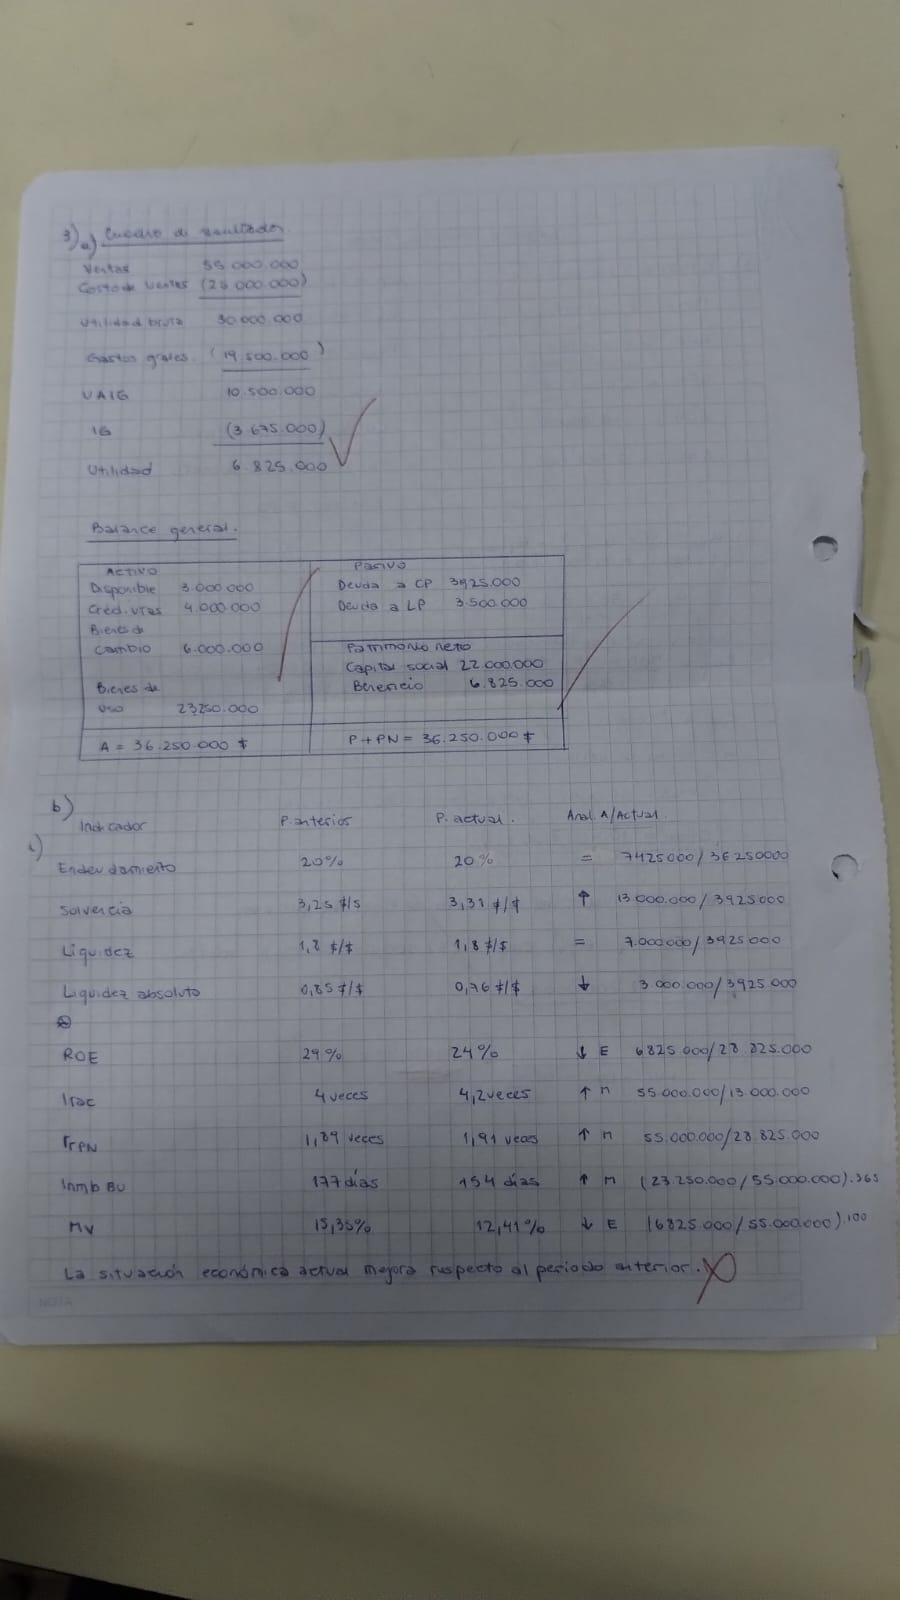 3) a) Cuadro de resultados
Ventas 55 000.000
Costo de ventas (25 000.000)
Utilidad bruta 30000.000
Gastos grales. (19.500.000)
UAIG 10.500.000
IG (3.675.000)
Utilidad 6.825.000
Balance general.
ACTIVO
Disponible 3.000.000
Cred. vtas 4.000.000
Bienes de
cambio 6.000.000
Bienes de
uso 23250.000
A = 36.250.000 $
Pasivo
Deuda a CP 3925.000
Deuda a LP 3.500.000
Patrimonio neto
Capital social 22.000.000
Beneficio 6.825.000
P + PN = 36.250.000 $
b)
Indicador P. anterior P. actual. Anal. A/Actual
c)
Endeudamiento 20% 20% = 7425000/36250000
Solvencia 3,25 $/$ 3,31 $/$ ↑ 13.000.000/3925000
Liquidez 1,8 $/$ 1,8 $/$ = 7.000.000/3925.000
Liquidez absoluta 0,85 $/$ 0,76 $/$ ↓ 3 000.000/3925.000
ROE 29% 24% ↓ E 6825 000/28.825.000
Irac 4 veces 4,2 veces ↑ M 55.000.000/13.000.000
rPN 1,89 veces 1,91 veces ↑ M 55.000.000/28.825.000
Inmb BU 177 días 154 días ↑ M (23.250.000/55.000.000).365
MV 15,35% 12,41% ↓ E (6825.000/55.000.000).100
La situación económica actual mejora respecto al periodo anterior.
NOTA